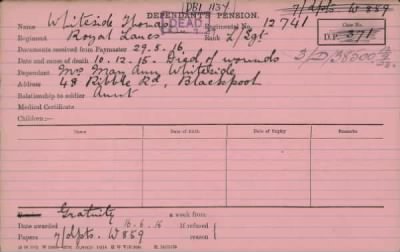 DB1 1134
7/dpts W859
DEPENDANT'S PENSION.
Name Whiteside Thomas DEAD Regimental No. 12741
Case No.
Regiment Royal Lancs Rank L/Sgt
D.P. 371
Documents received from Paymaster 29.8.16
3/D/38500
Date and cause of death 10.12.15. Died of wounds
Dependant Mrs Mary Ann Whiteside
Address 48 Ribble Rd, Blackpool
Relationship to soldier Aunt
Medical Certificate
Children:—
Name Date of Birth. Date of Expiry Remarks
Gratuity a week from
Date awarded 16.6.16 If refused
Papers 7/dpts. W859 reason